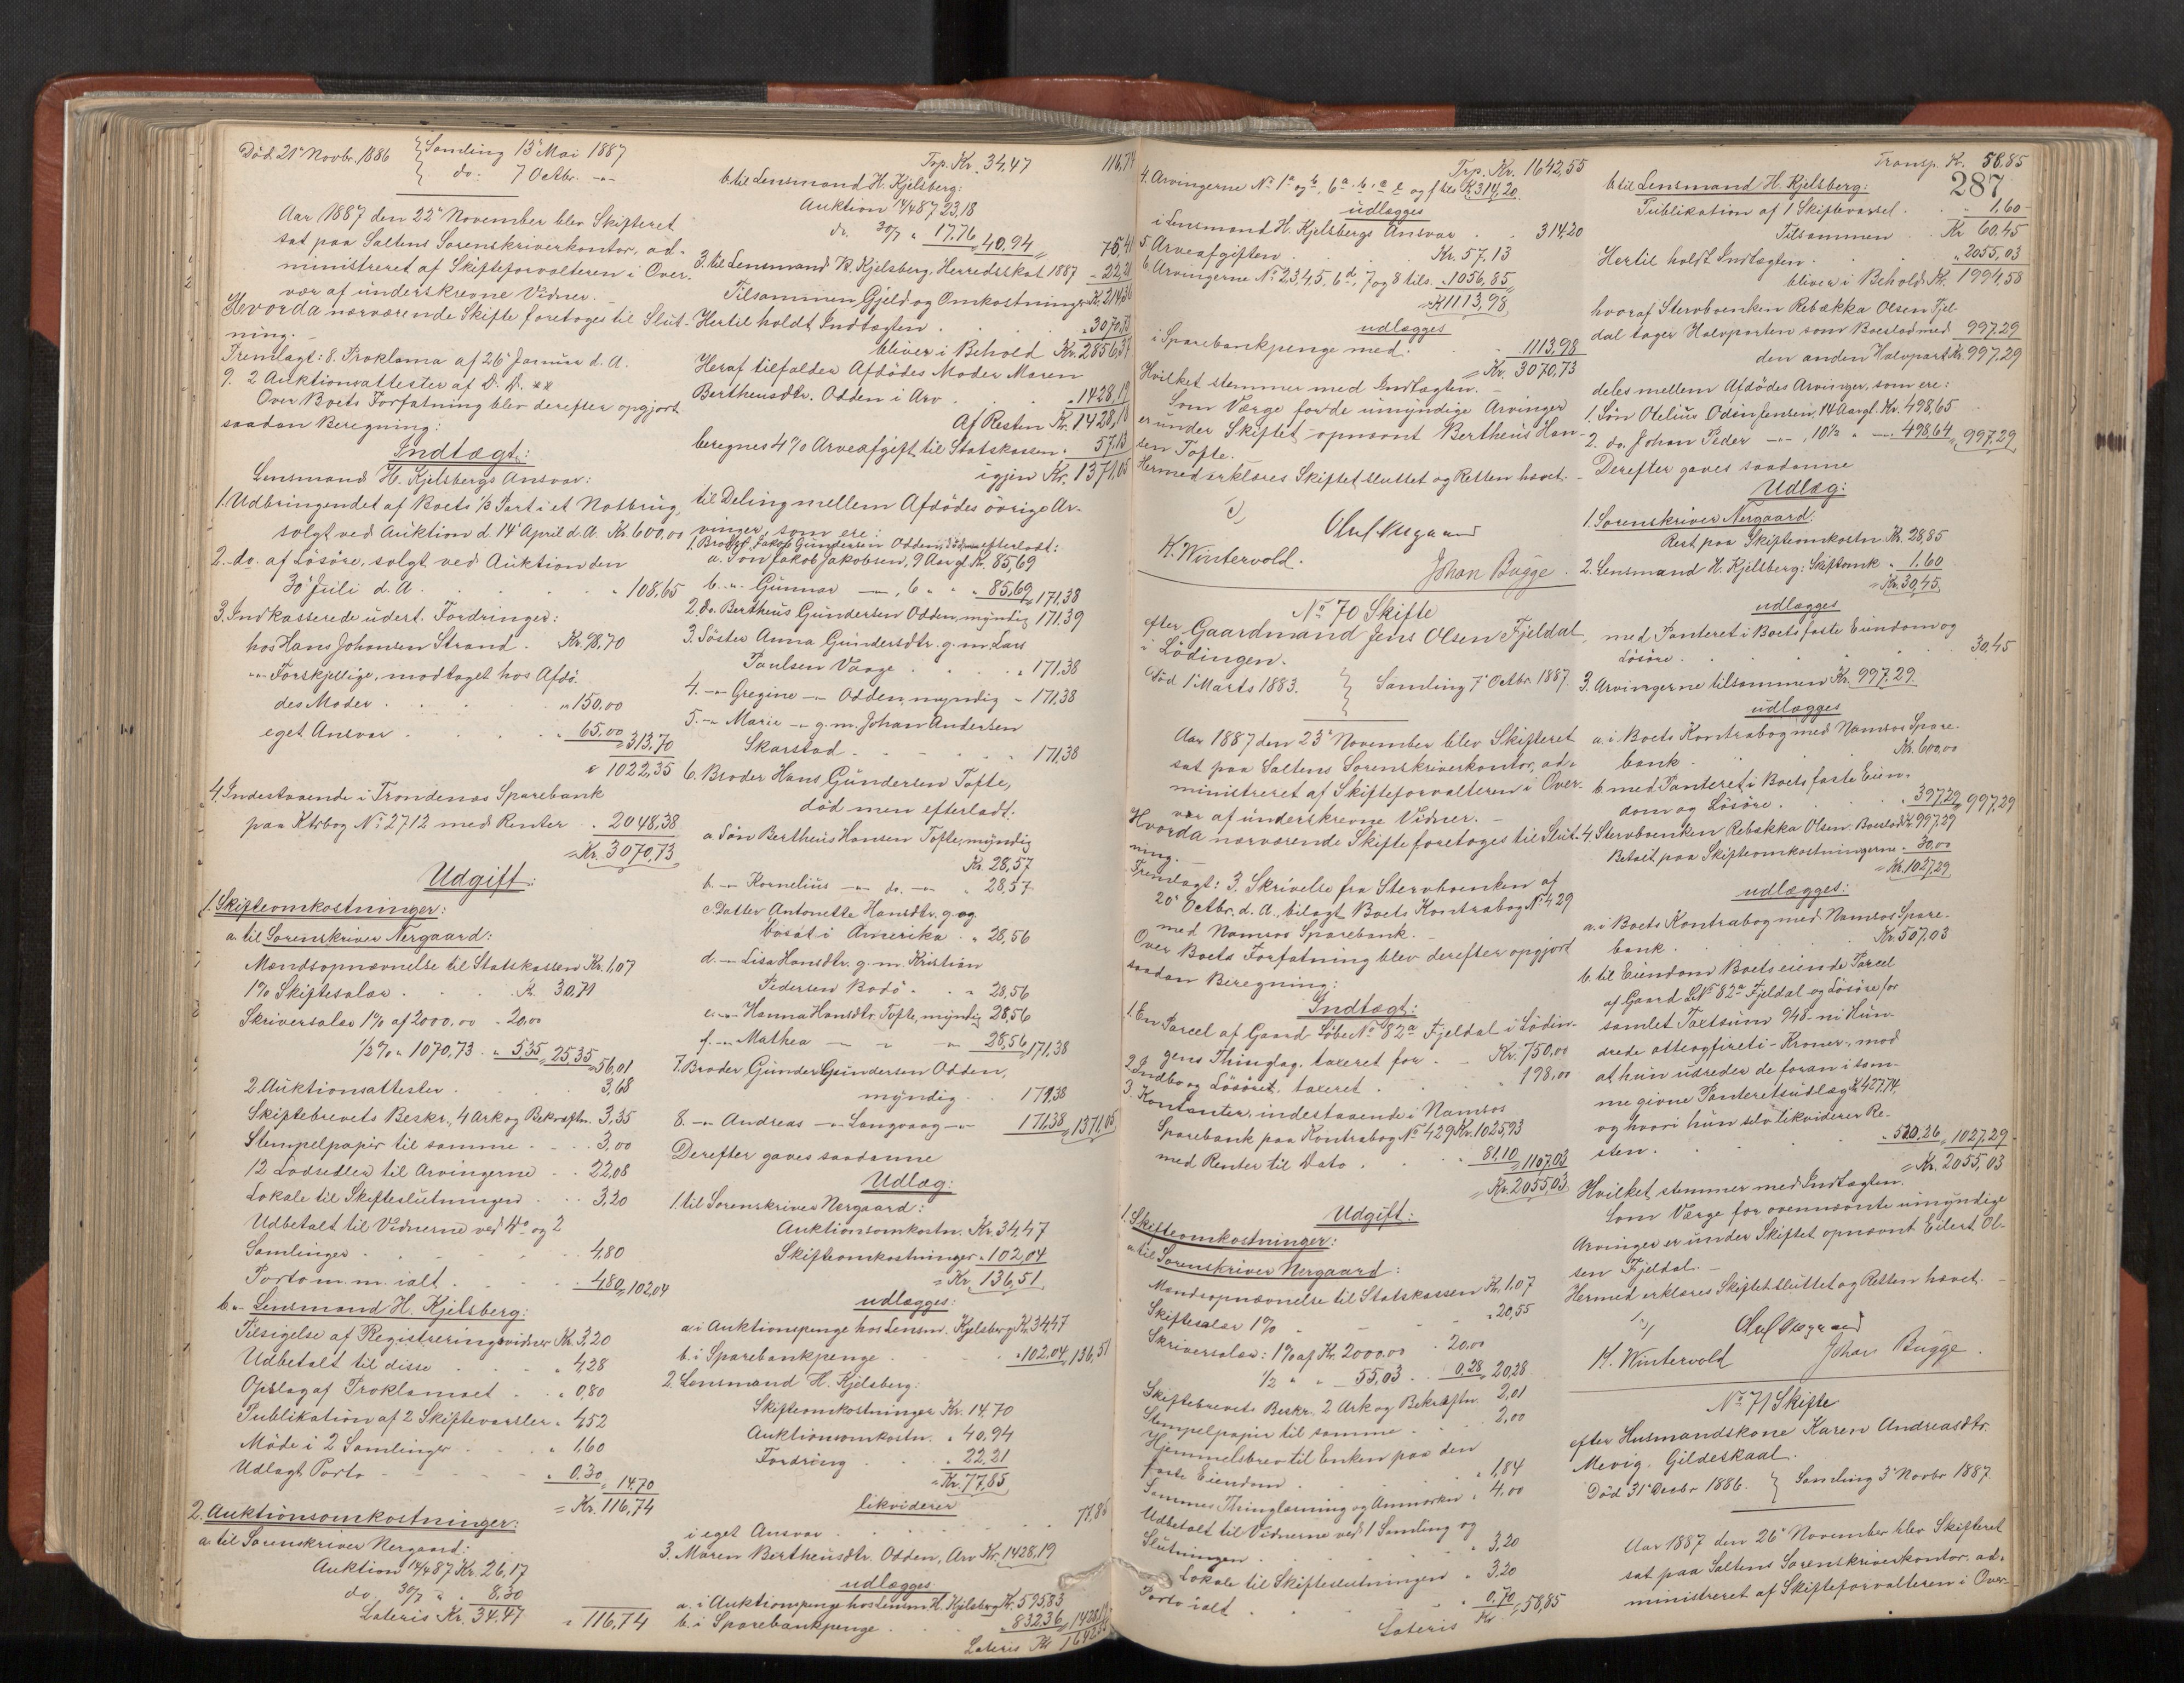 Død 21' Novbr. 1886 } Samling 13' Mai 1887
} do: 7 Octbr. -"-
Aar 1887 den 22' November blev Skifteret
sat paa Saltens Sorenskriverkontor, ad-
ministreret af Skifteforvalteren i Over-
vær af underskrevne Vidner.
Hvorda nærværende Skifte foretoges til Slut-
ning.
Fremlagt: 8. Proklama af 26' Januar d. A.
9. 2 Auktionsattester af D. D.
Over Boets Forfatning blev derefter opgjort
saadan Beregning:
Indtægt:
Lensmand H. Kjelsbergs Ansvar:
1. Udbringendet af Boets 1/3 Part i et Notbrug,
solgt ved Auktion d. 14' April d. A. Kr. 600,00
2. do. af Løsøre, solgt ved Auktion den
30' Juli d. A. . . " 108,65
3. Indkasserede udest. Fordringer:
hos Hans Johansen Strand . Kr. 98,70
-"- Forskjellige, modtaget hos Afdø-
des Moder . . . " 150,00
eget Ansvar . . . " 65,00 = 313,70
" 1022,35
4. Indestaaende i Trondenæs Sparebank
paa Ktrbog No 2712 med Renter . 2048,38
= Kr. 3070,73
Udgift:
1. Skifteomkostninger:
a. til Sorenskriver Nergaard:
Mandsopnævnelse til Statskassen Kr. 1,07
1% Skiftesalær . . . Kr. 30,71
Skriversalær 1% af 2000,00 . 20,00
1/2% " 1070,73 . " 5,35 = 25,35 = 56,01
2 Auktionsattester . . . 3,68
Skiftebrevets Beskr., 4 Ark og Bekræftn. 3,35
Stempelpapir til samme . . . 3,00
12 Lodsedler til Arvingerne . . 22,08
Lokale til Skifteslutningen . . . 3,20
Udbetalt til Vidnerne ved do og 2
Samlinger . . . 4,80
Porto m. m. ialt . . . 4,80 = 102,04
b. -"- Lensmand H. Kjelsberg:
Tilsigelse af Registreringsvidner Kr. 3,20
Udbetalt til disse . . . " 4,28
Opslag af Proklamaet . . " 0,80
Publikation af 2 Skiftevarsler . 4,52
Møde i 2 Samlinger . . . " 1,60
Udlagt Porto . . . " 0,30 = 14,70
= Kr. 116,74
2. Auktionsomkostninger:
a. til Sorenskriver Nergaard:
Auktion 14/4 87 Kr. 26,17
do. 30/7 " " 8,30
Lateris Kr. 34,47 " 116,74
Trp. Kr. 34,47 116,74
b. til Lensmand H. Kjelsberg:
Auktion 14/4 87 23,18
do. 30/7 " 17,76 = 40,94 = 75,41
3. til Lensmand H. Kjelsberg, Herredsskat 1887 - 22,21
Tilsammen Gjeld og Omkostninger Kr. 214,36
Hertil holdt Indtægten . . " 3070,73
bliver i Behold Kr. 2856,37
Heraf tilfalder Afdødes Moder Maren
Bertheusdtr. Odden i Arv . . " 1428,19
Af Resten Kr. 1428,18
beregnes 4% Arveafgift til Statskassen . 57,13
igjen Kr. 1371,05
til Deling mellem Afdødes øvrige Ar-
vinger, som ere:
1. Broder Jakob Gundersen Odden, død men efterladt:
a. Søn Jakob Jakobsen, 9 Aar gl. Kr. 85,69
b. -"- Gunnar -"-, 6 " " " 85,69 = 171,38
2. do. Bertheus Gundersen Odden, myndig 171,39
3. Søster Anna Gundersdtr. g. m. Lars
Paulsen Vaage . . . " 171,38
4. -"- Gregine -"- Odden, myndig - 171,38
5. -"- Marie -"- g. m. Johan Andersen
Skarstad . . . " 171,38
6. Broder Hans Gundersen Tofte,
død men efterladt:
a Søn Bertheus Hansen Tofte, myndig
Kr. 28,57
b. -"- Kornelius -"- do. -"- " 28,57
c. Datter Antonette Hansdtr. g. og
bosat i Amerika . " 28,56
d. -"- Lisa Hansdtr. g. m. Kristian
Pedersen Bodø . . " 28,56
e. -"- Hanna Hansdtr. Tofte, myndig 28,56
f. -"- Mathea -"- " -"- 28,56 = 171,38
7. Broder Gunder Gundersen Odden,
myndig . . 171,38
8. -"- Andreas -"- Langvaag -"- 171,38 = 1371,05
Derefter gaves saadanne
Udlæg:
1. til Sorenskriver Nergaard:
Auktionsomkostn. Kr. 34,47
Skifteomkostninger " 102,04
= Kr. 136,51
udlægges:
a. i Auktionspenge hos Lensm. Kjelsberg Kr. 34,47
b. i Sparebankpenge . . . " 102,04 = 136,51
2. Lensmand H. Kjelsberg:
Skifteomkostninger Kr. 14,70
Auktionsomkostn. " 40,94
Fordring . . " 22,21
= Kr. 77,85
likviderer
i eget Ansvar . . . 77,85
3. Maren Bertheusdtr. Odden, Arv Kr. 1428,19
udlægges
a. i Auktionspenge hos Lensm. H. Kjelsberg Kr. 595,83
b. i Sparebankpenge . . " 832,36 = 1428,19
Lateris Kr. 1642,55
Trp. Kr. 1642,55
4. Arvingerne No 1a og b, 6a, b, c, e og f tils Kr. 314,20
udlægges
i Lensmand H. Kjelsbergs Ansvar . . 314,20
5. Arveafgiften . . . Kr. 57,13
6. Arvingerne No 2, 3, 4, 5, 6d, 7 og 8 tils. " 1056,85
= Kr. 1113,98
udlægges
i Sparebankpenge med . . . 1113,98
= Kr. 3070,73
Hvilket stemmer med Indtægten.
Som Værge for de umyndige Arvinger
er under Skiftet opnævnt Bertheus Han-
sen Tofte.
Hermed erklæres Skiftet sluttet og Retten hævet.
Oluf Nergaard
K. Wintervold. Johan Bugge.
No 70 Skifte
efter Gaardmand Jens Olsen Fjeldal
i Lødingen.
Død 1' Marts 1883. } Samling 7' Octbr. 1887.
Aar 1887 den 23' November blev Skifteret
sat paa Saltens Sorenskriverkontor, ad-
ministreret af Skifteforvalteren i Over-
vær af underskrevne Vidner.
Hvorda nærværende Skifte foretoges til Slut-
ning.
Fremlagt: 3. Skrivelse fra Stervboenken af
20' Octbr. d. A., bilagt Boets Kontrabog No 429
med Namsos Sparebank.
Over Boets Forfatning blev derefter opgjort
saadan Beregning:
Indtægt:
1. En Parcel af Gaard Løbe No 82a Fjeldal i Lødin-
gens Thinglag, taxeret for . - Kr. 750,00
2. Indbo og Løsøret, taxeret . . " 198,00
3. Kontanter, indestaaende i Namsos
Sparebank paa Kontrabog No 429 Kr. 1025,93
med Renter til Dato . . . " 81,10 = 1107,03
= Kr. 2055,03
Udgift:
1. Skifteomkostninger:
a. til Sorenskriver Nergaard:
Mandsopnævnelse til Statskassen Kr. 1,07
Skiftesalær 1% . . . " 20,55
Skriversalær: 1% af Kr. 2000,00 . 20,00
1/2 " " 55,03 . 0,28 = 20,28
Skiftebrevets Beskr. 2 Ark og Bekræftn. 2,01
Stempelpapir til samme . . 2,00
Hjemmelsbrev til Enken paa den
faste Eiendom . . . " 1,84
Sammes Thinglæsning og Anmærkn " 4,00
Udbetalt til Vidnerne ved 1 Samling og
Slutningen . . . " 3,20
Lokale til Skifteslutningen " 3,20
Porto ialt . . . " 0,70 = 58,85
Lateris Kr.
Transp. Kr. 58,85
287
b. til Lensmand H. Kjelsberg:
Publikation af 1 Skiftevarsel . . " 1,60
Tilsammen . Kr 60,45
Hertil holdt Indtægten . . " 2055,03
bliver i Behold Kr. 1994,58
hvoraf Stervboenken Rebækka Olsen Fjel-
dal tager Halvparten som Boeslod med 997,29
den anden Halvpart Kr. 997,29
deles mellem Afdødes Arvinger, som ere:
1. Søn Otelius Odin Jensen, 14 Aar gl. Kr. 498,65
2. do. Johan Peder -"-, 10 1/2 " -"- 498,64 = 997,29
Derefter gaves saadanne
Udlæg:
1. Sorenskriver Nergaard:
Rest paa Skifteomkostn. Kr. 28,85
2. Lensmand H. Kjelsberg: Skiftomk " 1,60
= Kr. 30,45
udlægges
med Panteret i Boets faste Eiendom og
Løsøre . . . 30,45
3. Arvingerne tilsammen Kr. 997,29
udlægges
a. i Boets Kontrabog med Namsos Spare-
bank . . . Kr. 600,00
b. med Panteret i Boets faste Eien-
dom og Løsøre . . . " 397,29 = 997,29
4. Stervboenken Rebekka Olsen: Boeslod Kr. 997,29
Betalt paa Skifteomkostningerne " 30,00
= Kr. 1027,29
udlægges:
a. i Boets Kontrabog med Namsos Spare-
bank . . . Kr. 507,03
b. til Eiendom Boets eiende Parcel
af Gaard LNo 82a Fjeldal og Løsøre for
samlet Taxtsum 948 - ni Hun-
drede otteogfireti - Kroner, mod
at hun udreder de foran i sam-
me givne Panteretsudlæg Kr. 427,74,
og hvori hun selv likviderer Re-
sten . . . " 520,26 = 1027,29
= Kr. 2055,03
Hvilket stemmer med Indtægten.
Som Værge for ovennævnte umyndige
Arvinger er under Skiftet opnævnt Eilert Ol-
sen Fjeldal.
Hermed erklæres Skiftet sluttet og Retten hævet.
Oluf Nergaard
K. Wintervold Johan Bugge.
No 71 Skifte
efter Husmandskone Karen Andreasdtr.
Mevig, Gildeskaal.
Død 31' Decbr 1886. } Samling 3' Novbr 1887.
Aar 1887 den 26' November blev Skifteret
sat paa Saltens Sorenskriverkontor, ad-
ministreret af Skifteforvalteren i Over-